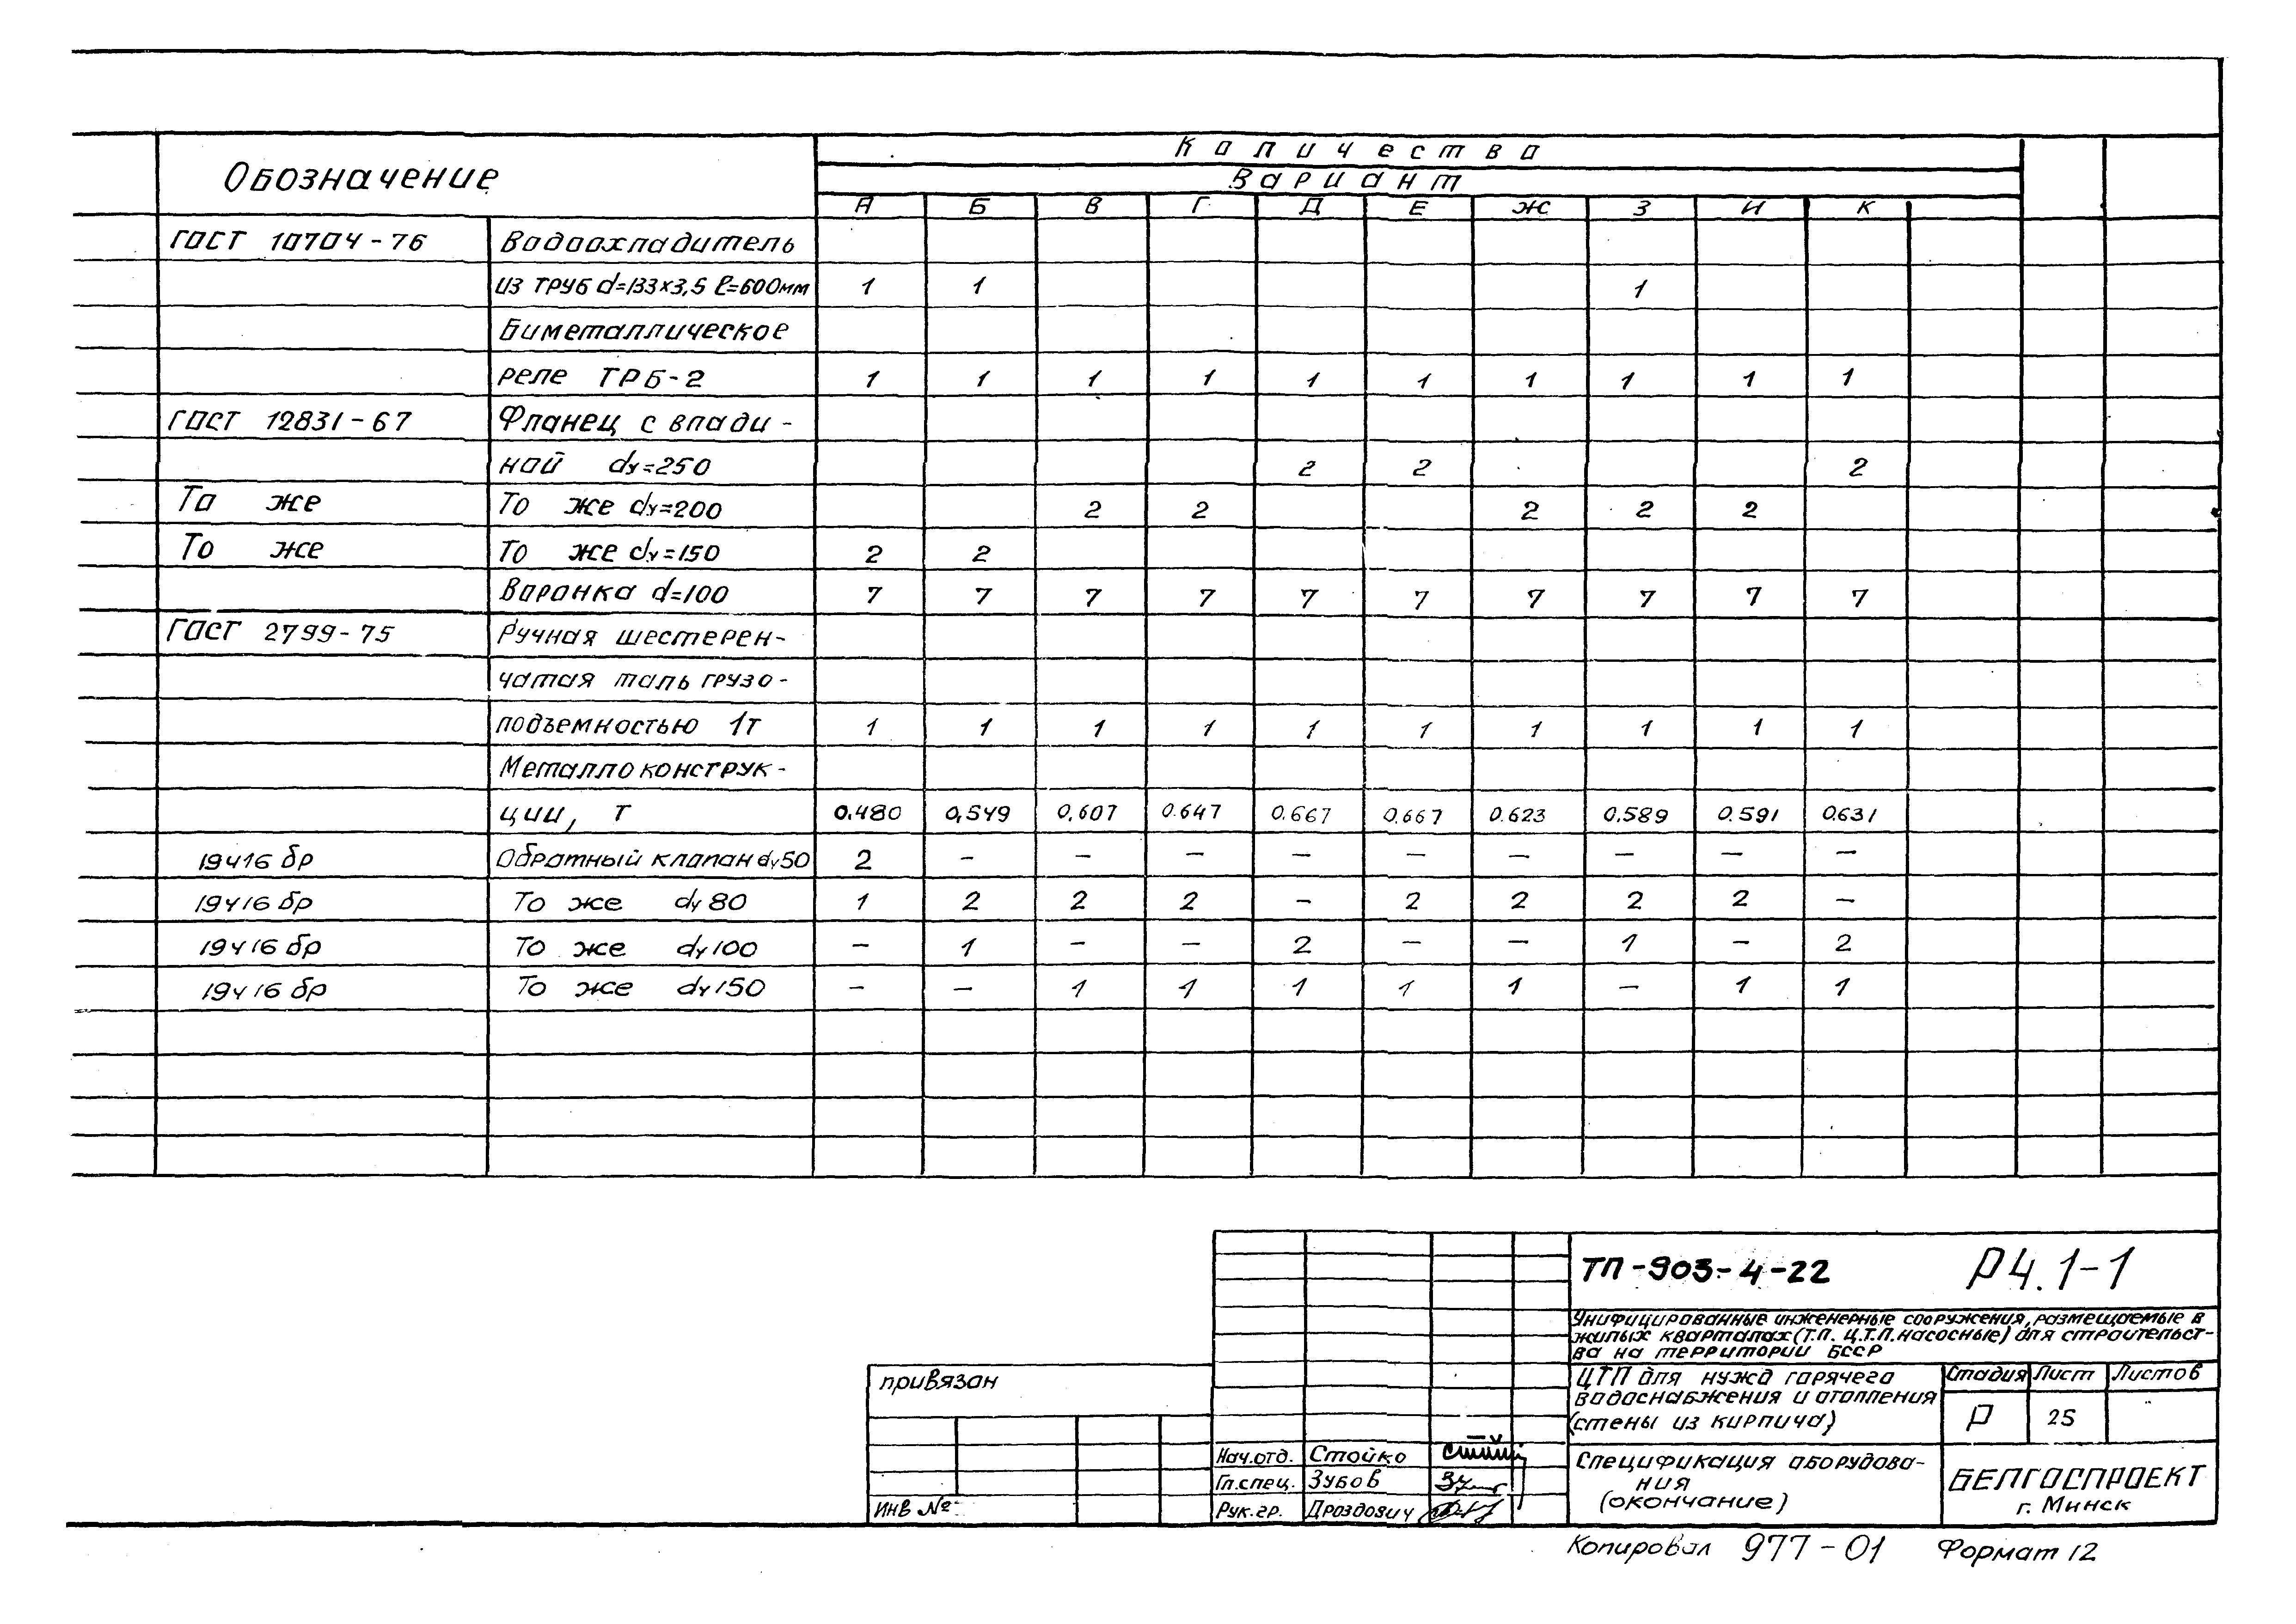 Обозначение
Количества
Вариант
А Б В Г Д Е Ж З И К
ГОСТ 10704-76 Водоохладитель
из труб d=133×3,5 ℓ=600мм 1 1 1
Биметаллическое
реле ТРБ-2 1 1 1 1 1 1 1 1 1 1
ГОСТ 12831-67 Фланец с впади-
ной dу=250 2 2 2
То же То же dу=200 2 2 2 2 2
То же То же dу=150 2 2
Воронка d=100 7 7 7 7 7 7 7 7 7 7
ГОСТ 2799-75 Ручная шестерен-
чатая таль грузо-
подъемностью 1т 1 1 1 1 1 1 1 1 1 1
Металлоконструк-
ции, т 0.480 0,549 0,607 0.647 0.667 0.667 0.623 0.589 0.591 0.631
19ч16 бр Обратный клапан dу50 2 – – – – – – – – –
19ч16 бр То же dу80 1 2 2 2 – 2 2 2 2 –
19ч16 бр То же dу100 – 1 – – 2 – – 1 – 2
19ч16 бр То же dу150 – – 1 1 1 1 1 – 1 1
ТП-903-4-22 Р4.1-1
Унифицированные инженерные сооружения, размещаемые в
жилых кварталах (Т.П. Ц.Т.П. насосные) для строительст-
ва на территории БССР
привязан
ЦТП для нужд горячего
водоснабжения и отопления
(стены из кирпича)
Стадия Лист Листов
Р 25
Нач.отд. Стойко
Гл.спец. Зубов
Рук.гр. Дроздович
Инв №
Спецификация оборудова-
ния
(окончание)
БЕЛГОСПРОЕКТ
г. Минск
Копировал 977-01 Формат 12